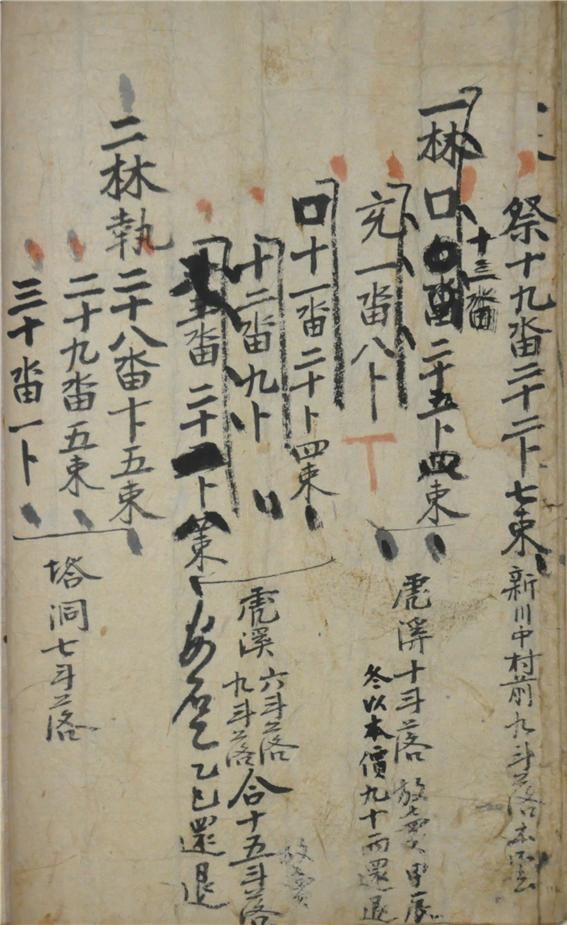 祭十九畓二十二卜七束 新川中村前九斗落
十三畓
一林口 畓二十五卜四束 虎溪十斗落 放賣甲辰
冬以本價九十両還退
兗一畓八卜
口十一畓二十卜四束
十二畓九卜 虎溪 六斗落 九斗落 合十五斗落 放賣
五畓二十一卜八束 乙巳還退
二林執二十八畓十卜五束
二十九畓五束 塔洞七斗落
三十畓一卜